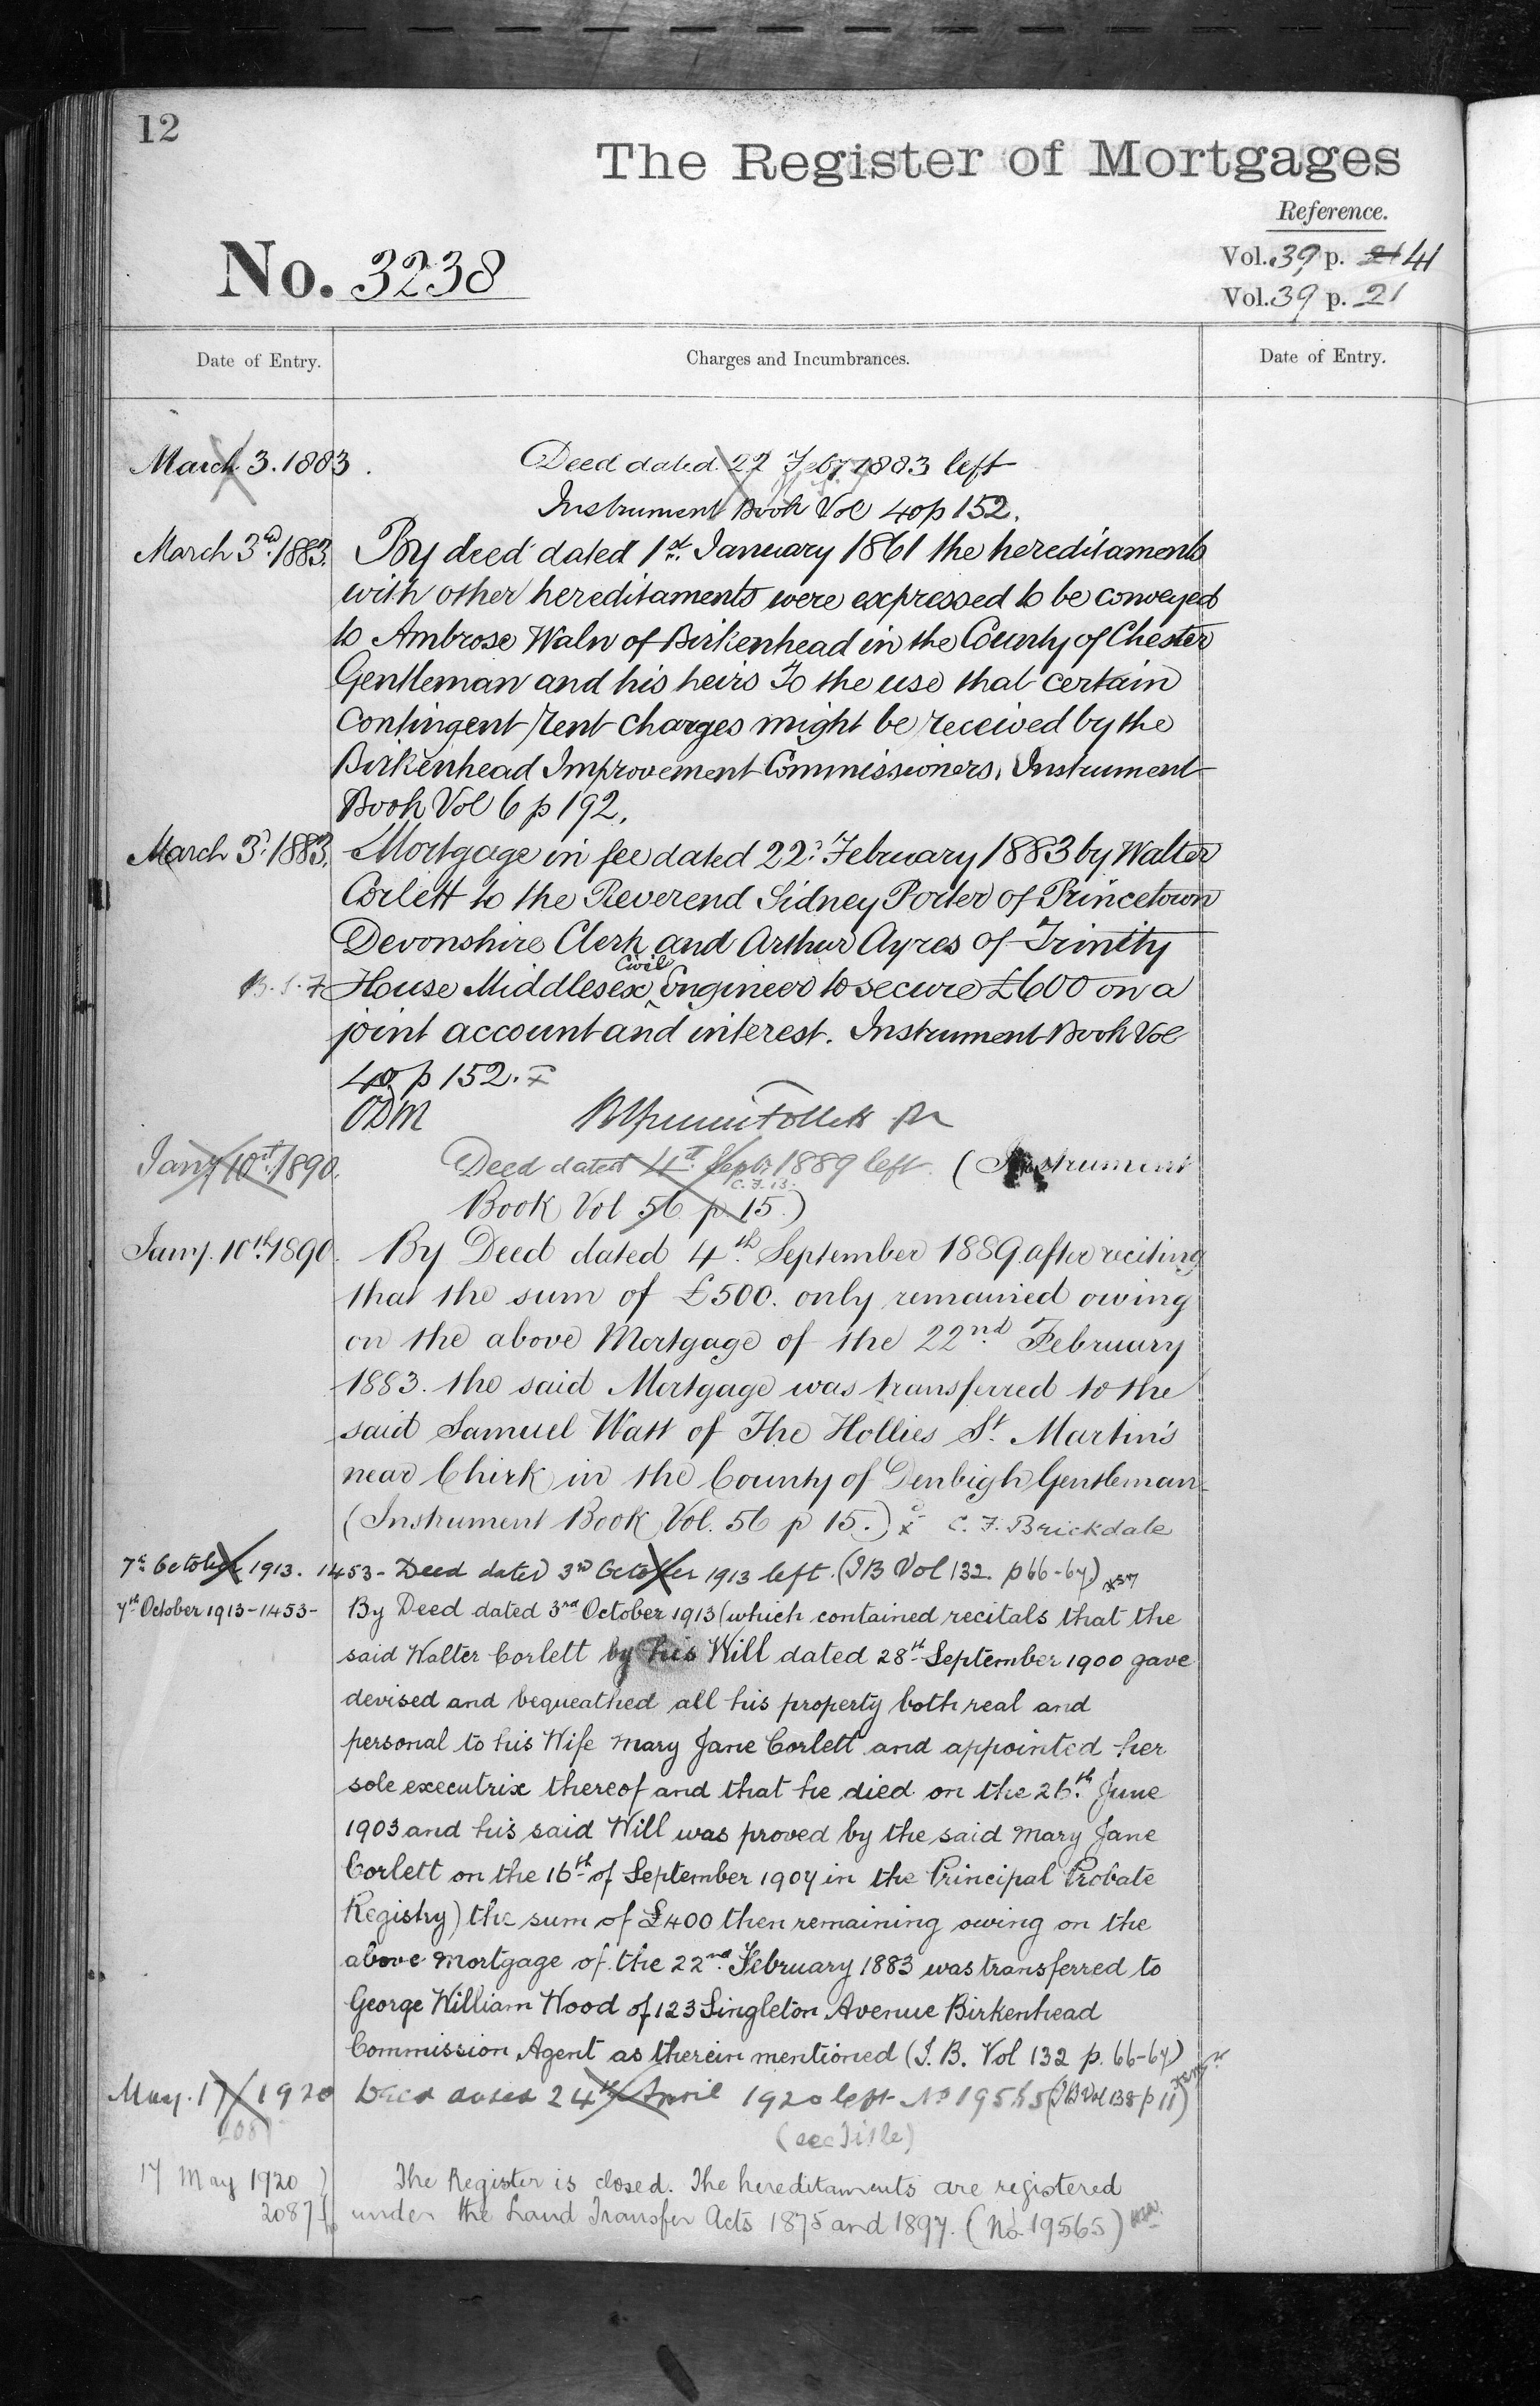 12
The Register of Mortgages
Reference.
No. 3238
Vol. 39 p. 21 41
Vol. 39 p. 21
Date of Entry.
Charges and Incumbrances.
Date of Entry.
March 3. 1883.
Deed dated 22 Feby 1883 left
Instrument Book Vol 40 p 152.
March 3rd. 1883. By deed dated 1st. January 1861 the hereditaments
with other hereditaments were expressed to be conveyed
to Ambrose Waln of Birkenhead in the County of Chester
Gentleman and his heirs To the use that certain
contingent rent charges might be received by the
Birkenhead Improvement Commissioners. Instrument
Book Vol 6 p 192.
March 3d. 1883. Mortgage in fee dated 22d. February 1883 by Walter
Corlett to the Reverend Sidney Porter of Princetown
Devonshire Clerk and Arthur Ayres of Trinity
House Middlesex Civil Engineer to secure £600 on a
joint account and interest. Instrument Book Vol
40 p 152.
Jany 10th. 1890. Deed dated 4th. Septr 1889 left. (Instrument
Book Vol 56 p 15.)
C.F.B.
Jany. 10th. 1890. By Deed dated 4th. September 1889 after reciting
that the sum of £500. only remained owing
on the above Mortgage of the 22nd. February
1883. the said Mortgage was transferred to the
said Samuel Watt of The Hollies St. Martin's
near Chirk in the County of Denbigh Gentleman
(Instrument Book Vol. 56 p 15.) x C. F. Brickdale
7th October 1913. 1453 - Deed dated 3rd October 1913 left. (IB Vol 132. p 66-67)
7th October 1913 - 1453 - By Deed dated 3rd October 1913 (which contained recitals that the
said Walter Corlett by his Will dated 28th September 1900 gave
devised and bequeathed all his property both real and
personal to his Wife Mary Jane Corlett and appointed her
sole executrix thereof and that he died on the 26th. June
1903 and his said Will was proved by the said Mary Jane
Corlett on the 16th of September 1907 in the Principal Probate
Registry) the sum of £400 then remaining owing on the
above mortgage of the 22nd. February 1883 was transferred to
George William Wood of 123 Singleton Avenue Birkenhead
Commission Agent as therein mentioned (I. B. Vol 132 p. 66-67)
May. 17 1920 Deed dated 24th April 1920 left No 19565 (IB Vol 138 p 11)
(see Title)
17 May 1920 The Register is closed. The hereditaments are registered
2087 under the Land Transfer Acts 1875 and 1897. (No 19565)